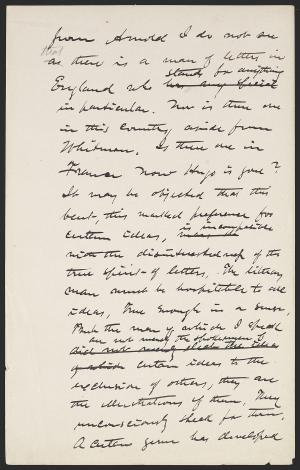 from Arnold I do not see
that
as there is a man of letters in
stands for anything
England who has any spirit
in particular. Nor is there one
in this country aside from
Whitman. Is there one in
France now Hugo is gone?
It may be objected that this
bent, this marked preference for
is incompatible
certain ideas,
with the disinterestedness of the
true spirit of letters. The literary
man must be hospitable to all
ideas, True enough in a sense,
But the men of whom I speak
are not merely the spokesmen of
did not merely the ideas
of which certain ideas to the
exclusion of others, they are
the illustrations of them. They
unconsciously stand for them.
A certain germ has developed